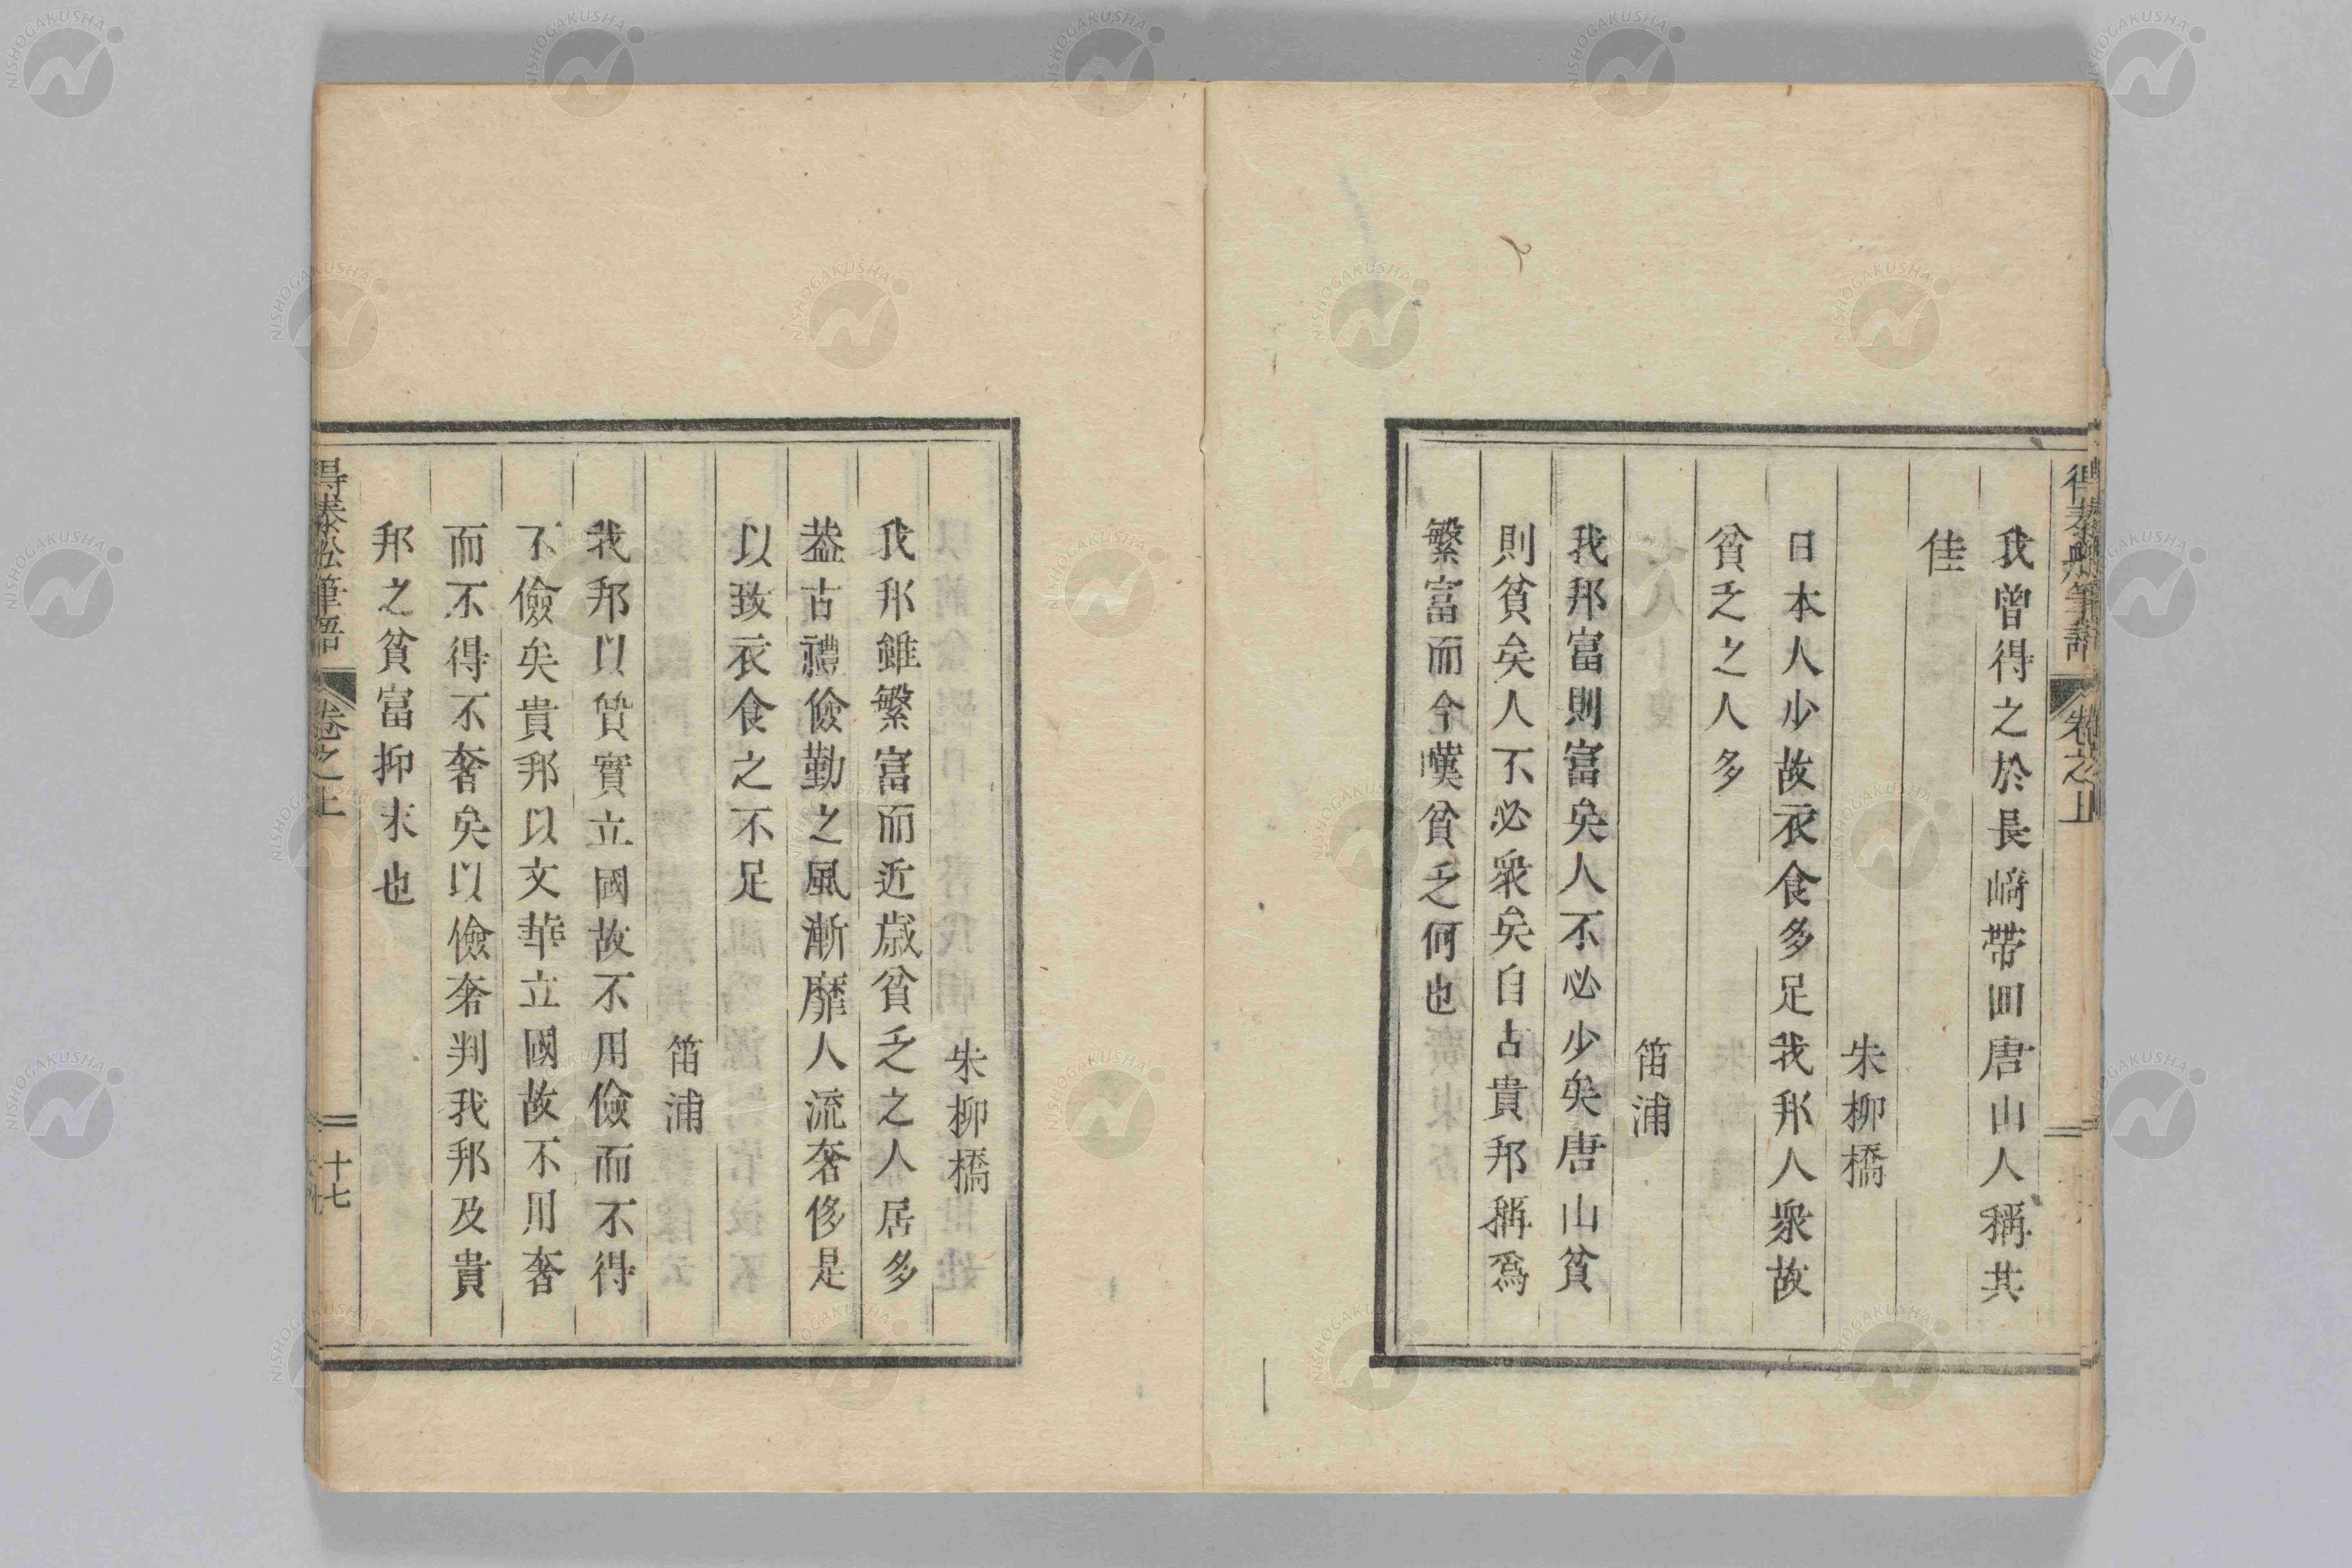 我曾得之於長﨑帶回唐山人稱其
佳
朱柳橋
日本人少故衣食多足我邦人衆故
貧乏之人多
笛浦
我邦富則富矣人不必少矣唐山貧
則貧矣人不必衆矣自古貴邦稱爲
繁富而今嘆貧乏何也
朱柳橋
我邦雖繁富而近歲貧乏之人居多
葢古禮儉勤之風漸靡人流奢侈是
以致衣食之不足
笛浦
我邦以質實立國故不用儉而不得
不儉矣貴邦以文華立國故不用奢
而不得不奢矣以儉奢判我邦及貴
邦之貧富抑末也
得泰舩筆語 卷之上 十七